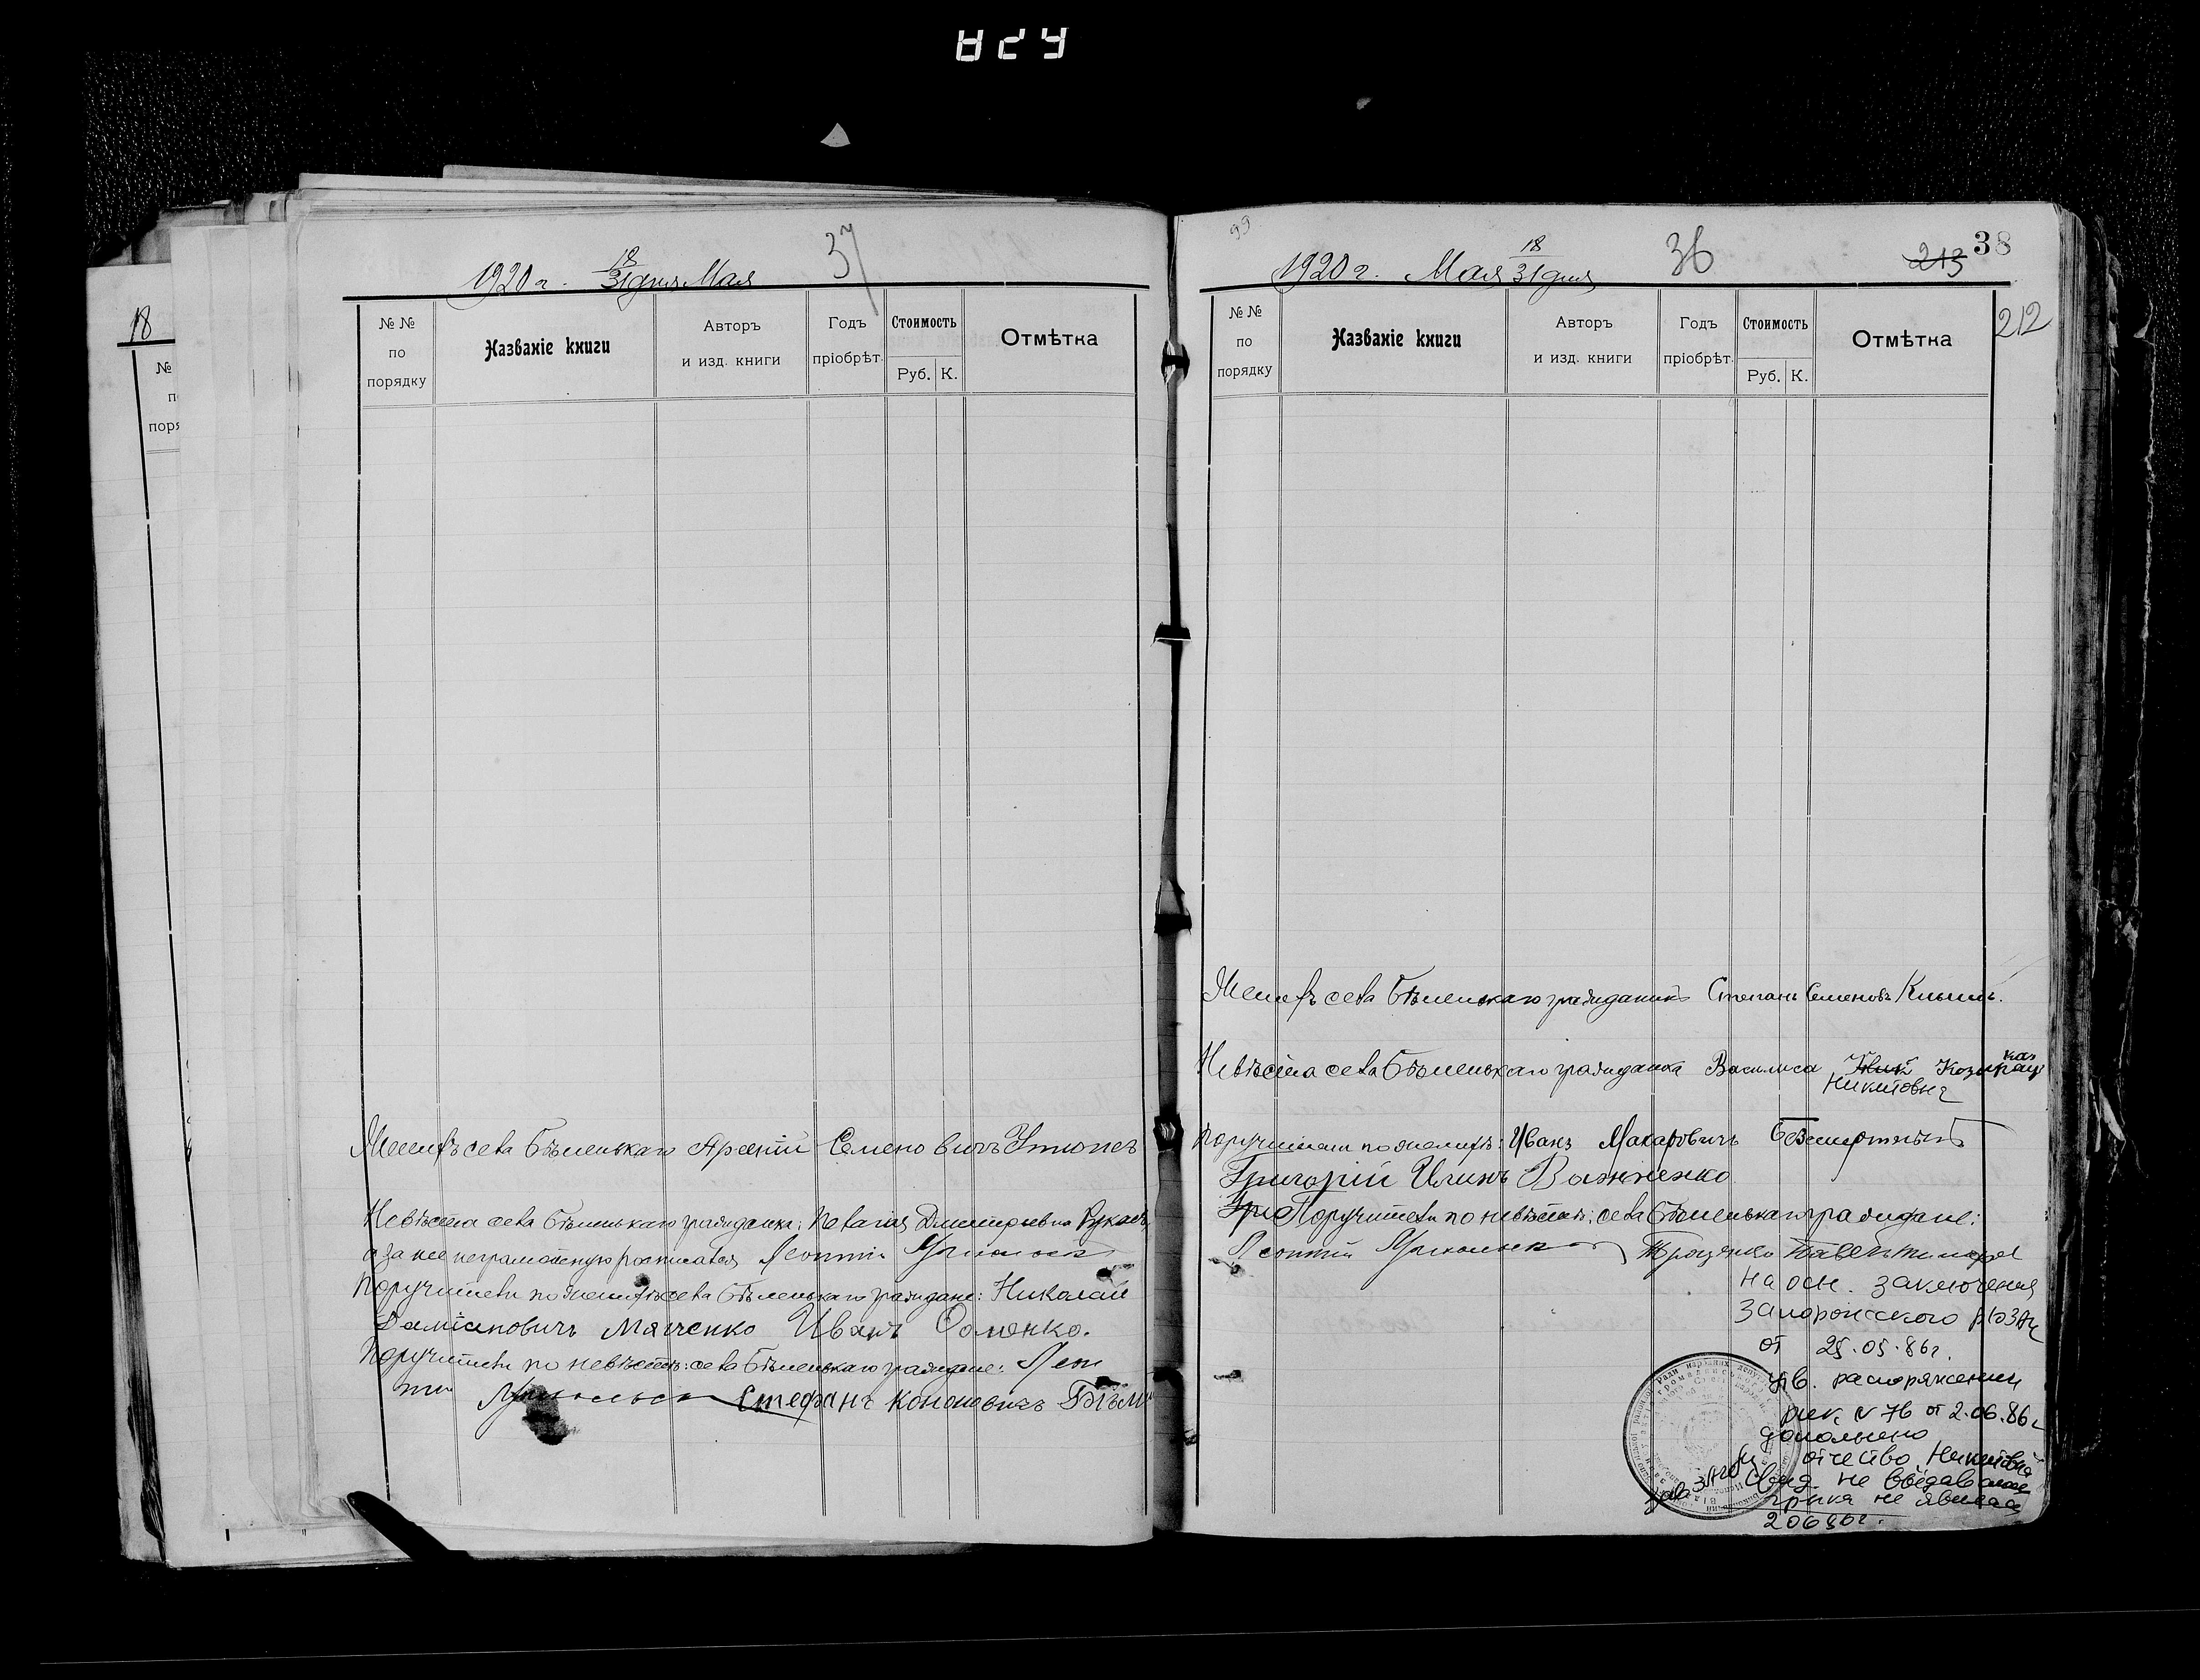 18
№
1920 г. 18/31 дня Мая
37
№ №
по
порядку
Названіе книги
Авторъ
и изд. книги
Годъ
пріобрѣт.
Стоимость
Руб. К.
Отмѣтка
Женихъ села Бѣленькаго Арсеній Семеновичъ
Невѣста села Бѣленькаго гражданка: Пелагия Дмитриевна
а за нее неграмотную росписался Леонтій
Поручители по женихѣ села Бѣленькаго граждане: Николай
Даміановичъ Мяченко Иванъ
Поручители по невѣстѣ: села Бѣленькаго граждане: Леон
тій Стефанъ Кононовичъ
99
1920 г. Мая 18/31 дня
36
213
38
212
№ №
по
порядку
Названіе книги
Авторъ
и изд. книги
Годъ
пріобрѣт.
Стоимость
Руб. К.
Отмѣтка
Женихъ села Бѣленькаго гражданинъ Степанъ Семеновъ
Невѣста села Бѣленькаго гражданка Василиса
Никитовна
Поручители по женихѣ: Иванъ Макаровичъ Безсмертный
Григорій Илинъ Важненко
Поручители по невѣстѣ: села Бѣленькаго граждане:
Леонтій Троценко Павелъ
на осн. заключения
Запорожского
от 29.05.86г.
утв. распоряжением
рик. № 76 от 2.06.86г
дополнено
отчество Никитовна
Свид. не выдавалось
гр-ка не явилась